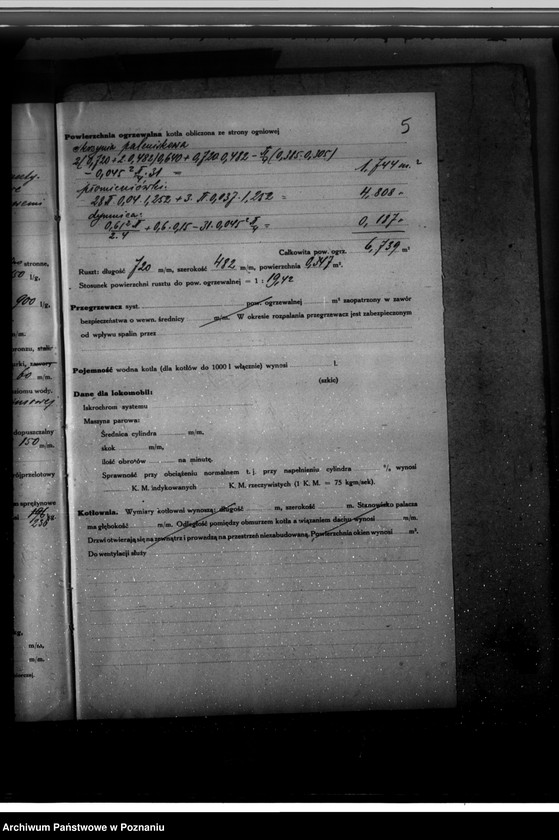 5
Powierzchnia ogrzewalna kotła obliczona ze strony ogniowej
skrzynia paleniskowa
2(0,720+2·0,482)0,640+0,720·0,482 - (0,385·0,305)
- 0,045² π/4 · 31 = 1,744 m.²
promieniówki:
28 π 0,04·1,252 + 3·π·0,037·1,252 = 4,808 "
dymnica:
0,61² π / 2·4 + 0,6·0,15 - 31·0,045² π/4 = 0,187 "
Całkowita pow. ogrz. 6,739 m²
Ruszt: długość 720 m/m, szerokość 482 m/m, powierzchnia 0,347 m².
Stosunek powierzchni rusztu do pow. ogrzewalnej = 1 : 19,42
Przegrzewacz syst. pow. ogrzewalnej m² zaopatrzony w zawór
bezpieczeństwa o wewn. średnicy m/m. W okresie rozpalania przegrzewacz jest zabezpieczony
od wpływu spalin przez
Pojemność wodna kotła (dla kotłów do 1000 l włącznie) wynosi l.
(szkic)
Dane dla lokomobil:
Iskrochron systemu
Maszyna parowa:
Średnica cylindra m/m,
skok m/m,
ilość obrotów na minutę.
Sprawność przy obciążeniu normalnem t. j. przy napełnieniu cylindra % wynosi
K. M. indykowanych K. M. rzeczywistych (1 K. M. = 75 kgm/sek).
Kotłownia. Wymiary kotłowni wynoszą: długość m, szerokość m. Stanowisko palacza
ma głębokość m/m. Odległość pomiędzy obmurzem kotła a wiązaniem dachu wynosi m/m.
Drzwi otwierają się na zewnątrz i prowadzą na przestrzeń niezabudowaną. Powierzchnia okien wynosi m².
Do wentylacji służy
stronne,
l/g,
900 l/g,
m/m.
m/m.
ziomu wody.
dopuszczalny
150 m/m.
sprężynowe
m/m,
m/m.
Archiwum Państwowe w Poznaniu